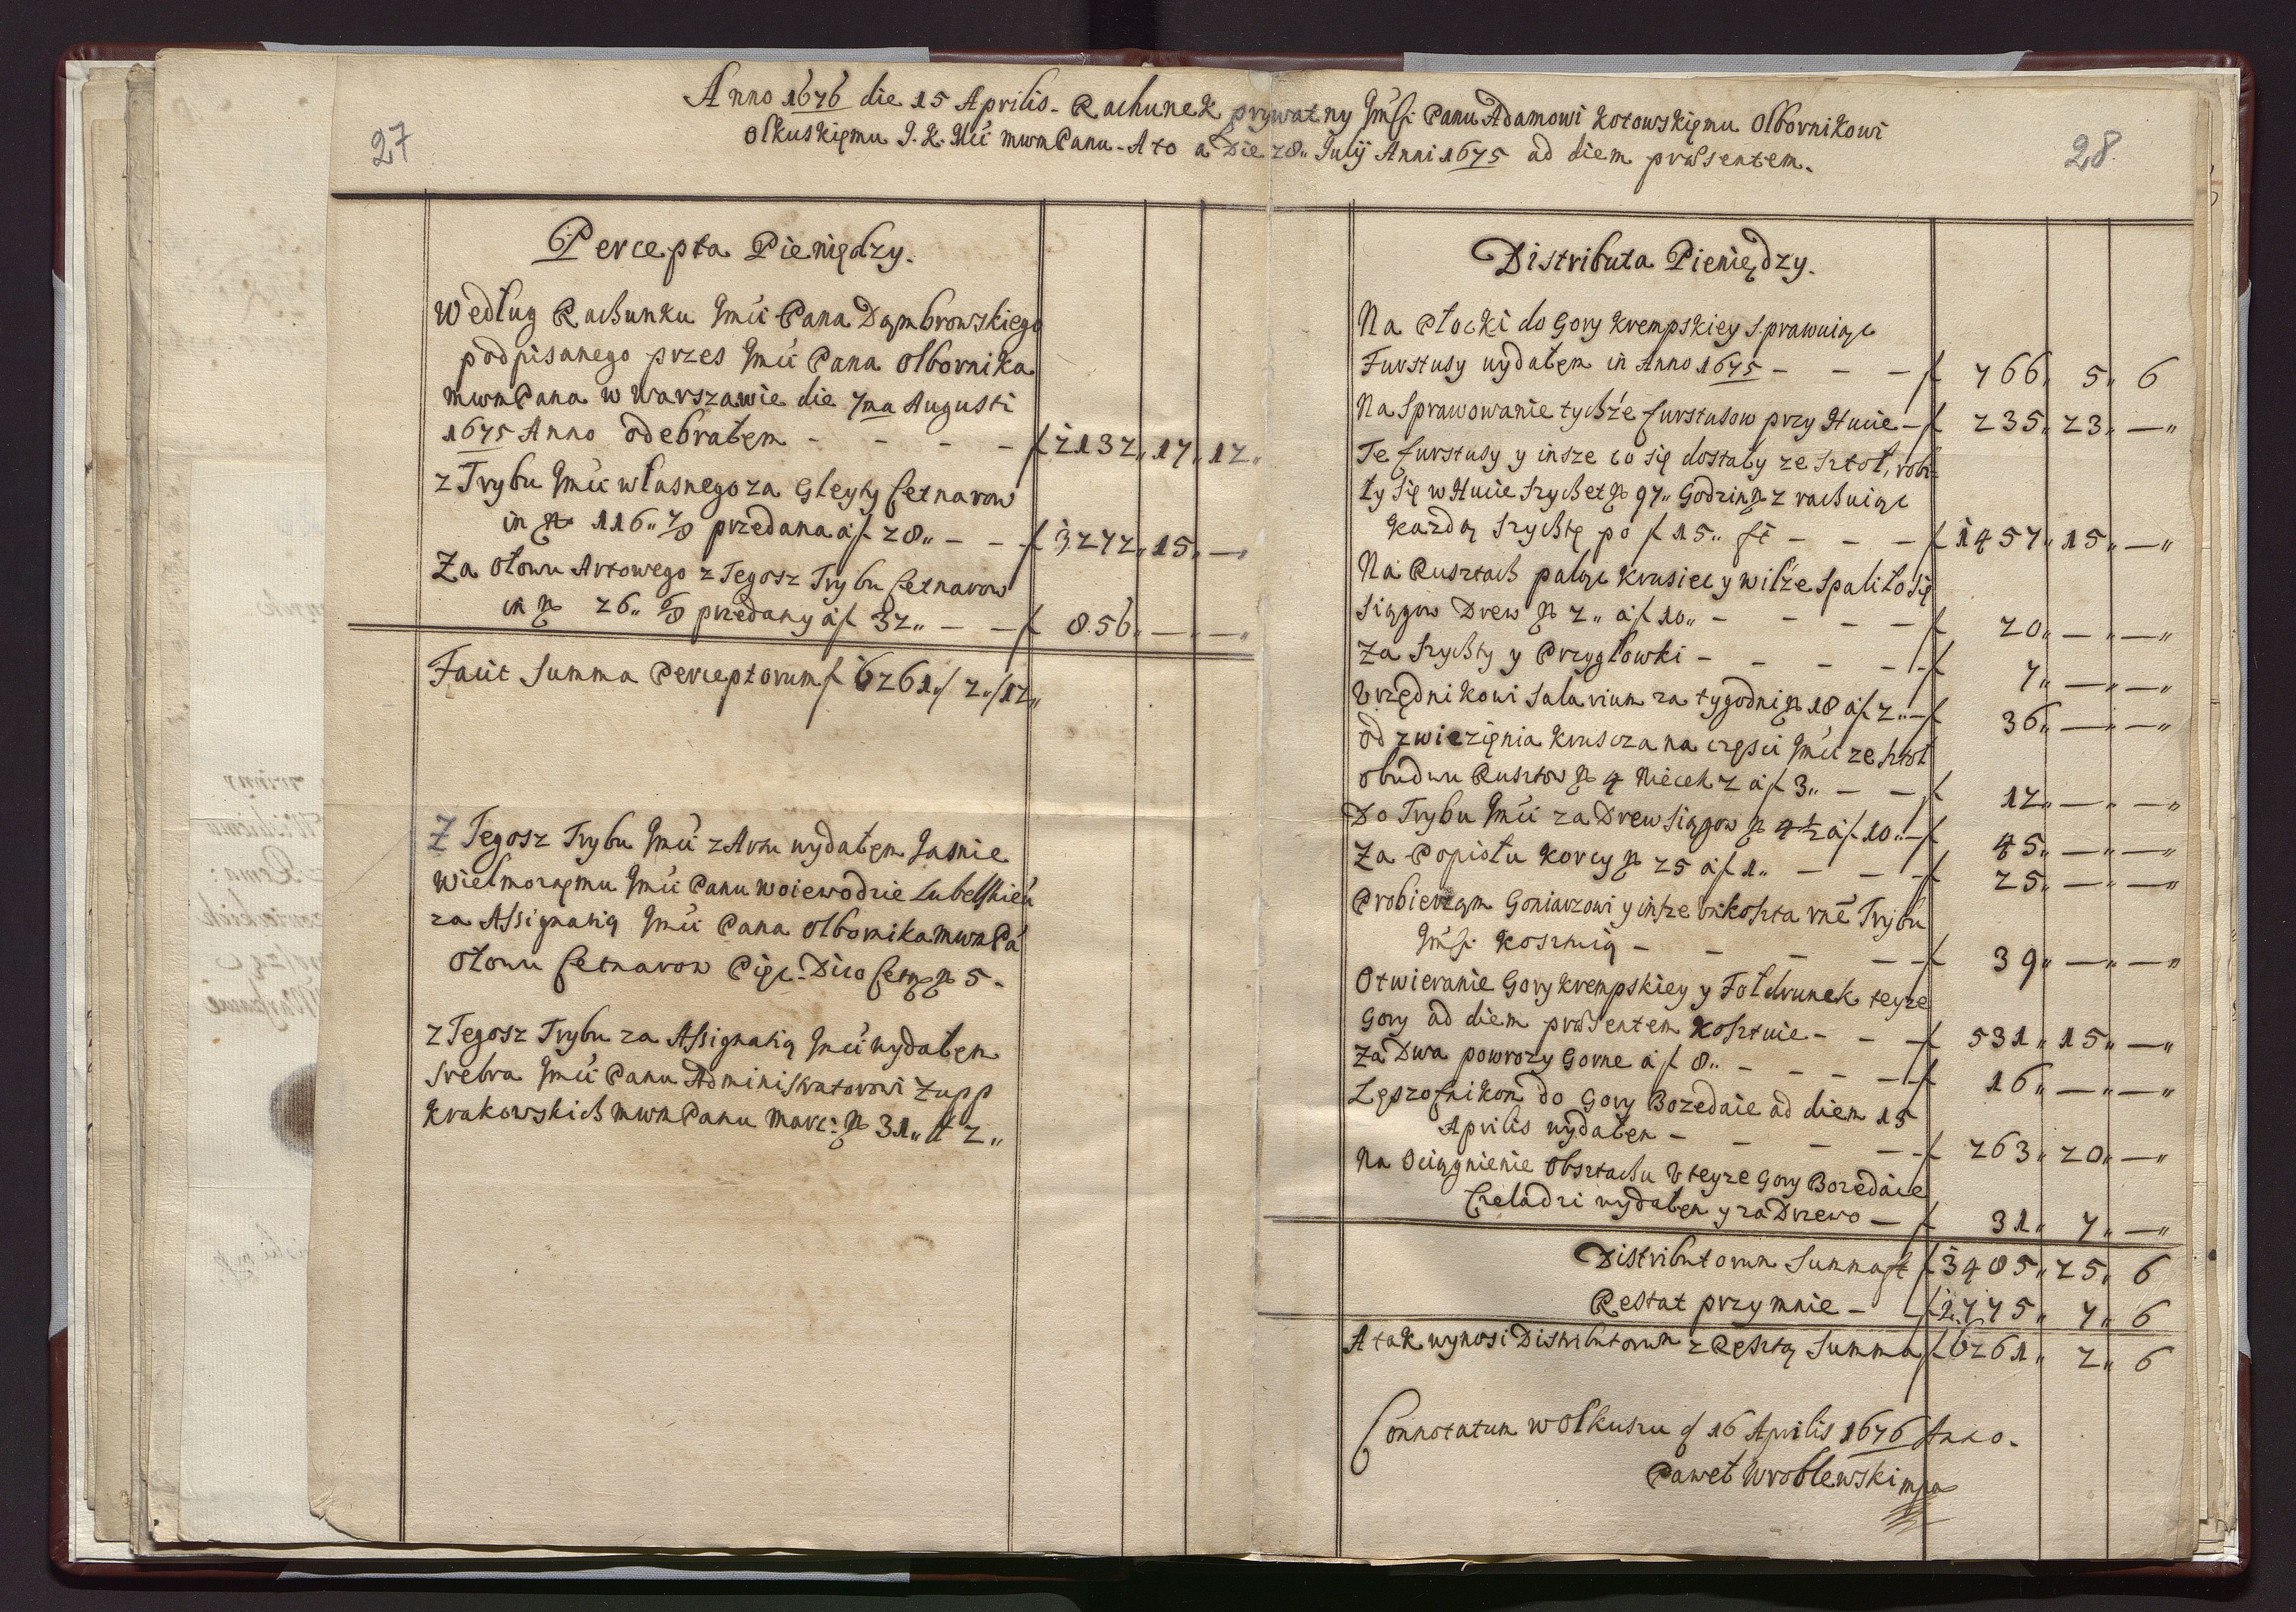 Anno 1676 die 15 Aprilis. Rachunek prywatny Jmści Panu Adamowi Kotowskięmu Olbornikowi
Olkuskięmu J. K. Mći mwmPanu. A to a Die 28„ Julij Anni 1675 ad diem præsentem.
27
28.
Percepta Pieniędzy.
Według Rachunku Jmći Pana Dąmbrowskiego
podpisanego przes Jmći Pana Olbornika
mwmPana w Warszawie die 7ma Augusti
1675 Anno odebrałęm - - - - f 2132„ 17„ 12„
z Trybu Jmći własnego za Gleyty Cetnarow
in No 116„ 7/8 przedana á f 28„ - - f 3272„ 15„ —„
Za Ołowu Artowego z Tegosz Trybu Cetnarow
in No 26„ 6/8 przedany á f 32„ - - f 856„ —„ —„
Facit Summa Perceptorum f 6261„/ 2„/ 12„
Z Tegosz Trybu Jmći z Artu wydałęm Jasnie
Wielmoznęmu Jmći Panu Woiewodzie Lubelskięu
za Assignatią Jmći Pana Olbornika mwmPa
Ołowu Cetnarow Pięc. Dico Cetn No 5.
z Tegosz Trybu za Assignatią Jmći wydałęm
Srebra Jmći Panu Administratorowi Zupp
Krakowskich mwmPanu Marc: No 31„ ł 2„
Distributa Pieniędzy.
Na Płocki do Gory Krempskiey Sprawuiąc
Furstusy wydałęm in Anno 1675 - - - f 766„ 5„ 6
Na Sprawowanie tychże furstusow przy Hucie - f 235„ 23„ —„
Te furstusy y insze co się dostały ze Sztol, robi-
ły się w Hucie Szychet No 97„ Godzin No 2 rachuiąc
Kazdą Szychtę po f 15„ ft - - - f 1457„ 15„ —„
Na Rusztach paląc Krusiec y wilże Spaliło się
Siągow Drew No 2„ á f 10„ - - - - f 20„ —„ —„
Za Szychty y Przygłowki - - - - f 7„ —„ —„
Vrzędnikowi Salarium za tygodni No 18 á f 2„ - f 36„ —„ —„
Od zwiezięnia Kruscza na częsci Jmći ze Sztol
obudwu Rusztow No 4 Niecek 2 á f 3„ - - f 12„ —„ —„
Do Trybu Jmći za Drew Siągow No 4 1/2 á f 10„ - f 45„ —„ —„
Za Popiołu Korcy No 25 á f 1„ - - - f 25„ —„ —„
Probierzęm Goniarzowi y insze vnkoszta rné Trybu
Jmści Kosztuią - - - - - f 39„ —„ —„
Otwieranie Gory Krempskiey y Foldrunek teyze
Gory ad diem præsentem Kosztuie - - - f 531„ 15„ —„
Za Dwa powrozy Gorne á f 8„ - - - - f 16„ —„ —„
Lęszofnikom do Gory Bozedaie ad diem 15
Aprilis wydałęm - - - - - f 263„ 20„ —„
Na Ociągnienie Obsztachu V teyze Gory Bozedaie
Czeladzi wydałęm y za Drzewo - f 31„ 7„ —„
Distributorum Summa ft f 3485„ 25„ 6
Restat przy mnie - f 2775„ 7„ 6
A tak wynosi Distributorum z Resztą Summa f 6261„ 2„ 6
Connotatum w Olkuszu d 16 Aprilis 1676 Anno.
Paweł Wroblewski mpa